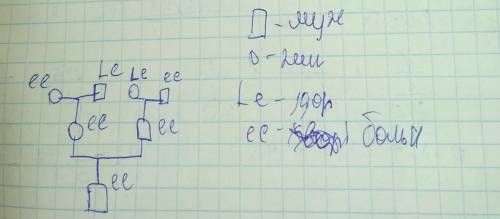 - муж
- жен
Le - здор
ee - больн
Le Le
ee ee
ee ee
ee